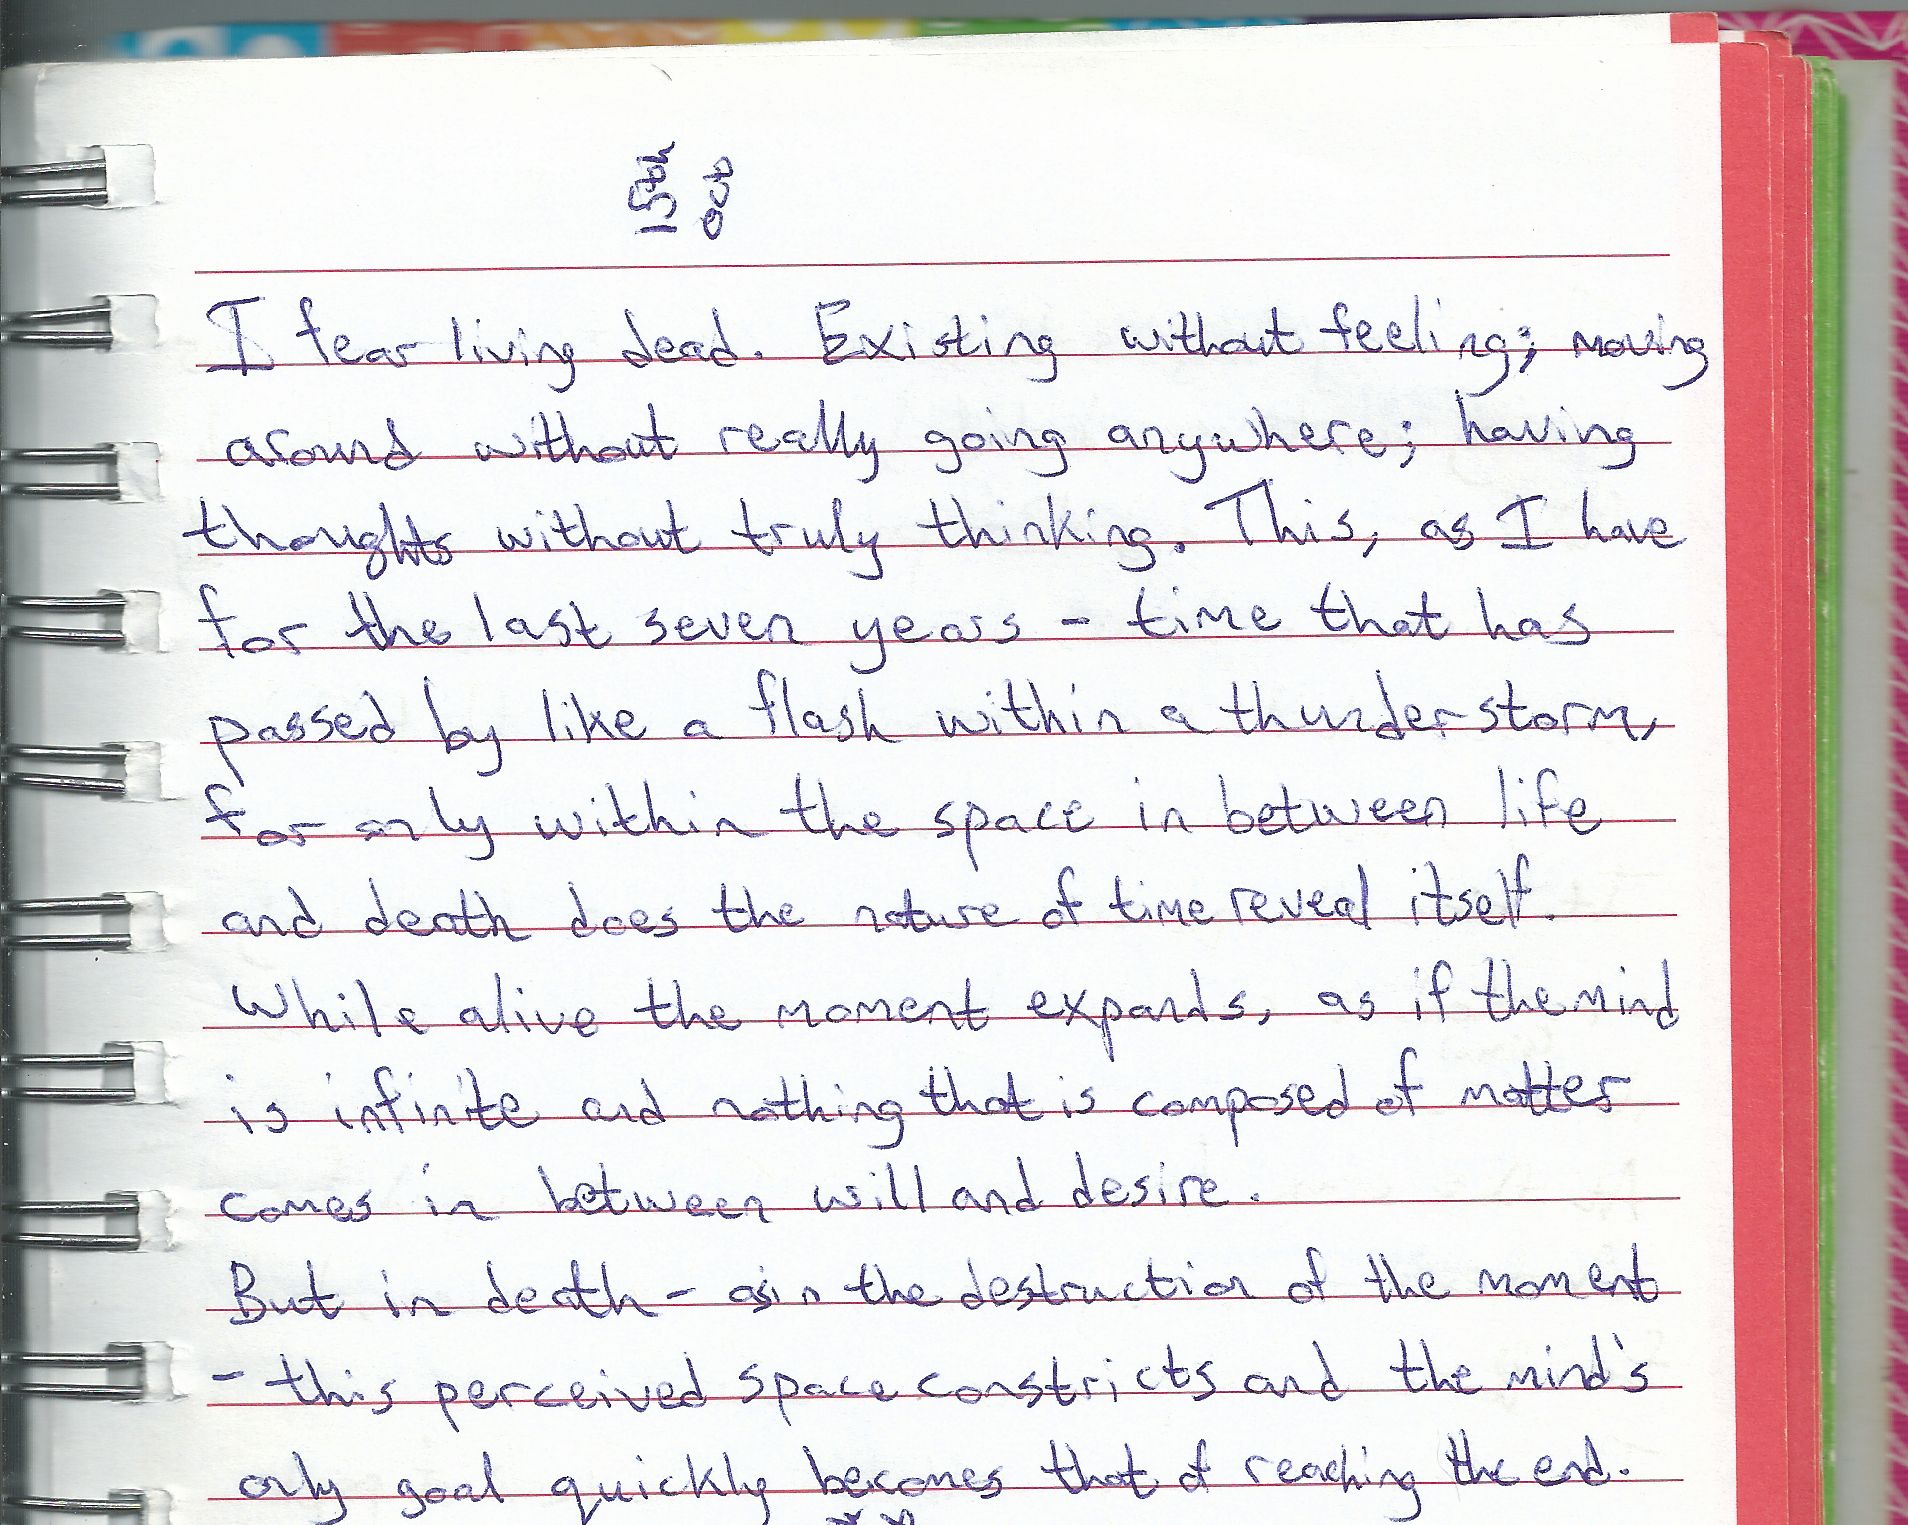 15th
Oct
I fear living dead. Existing without feeling; moving
around without really going anywhere; having
thoughts without truly thinking. This, as I have
for the last seven years - time that has
passed by like a flash within a thunderstorm,
for only within the space in between life
and death does the nature of time reveal itself.
While alive the moment expands, as if the mind
is infinite and nothing that is composed of matter
comes in between will and desire.
But in death - as in the destruction of the moment
- this perceived space constricts and the mind's
only goal quickly becomes that of reaching the end.